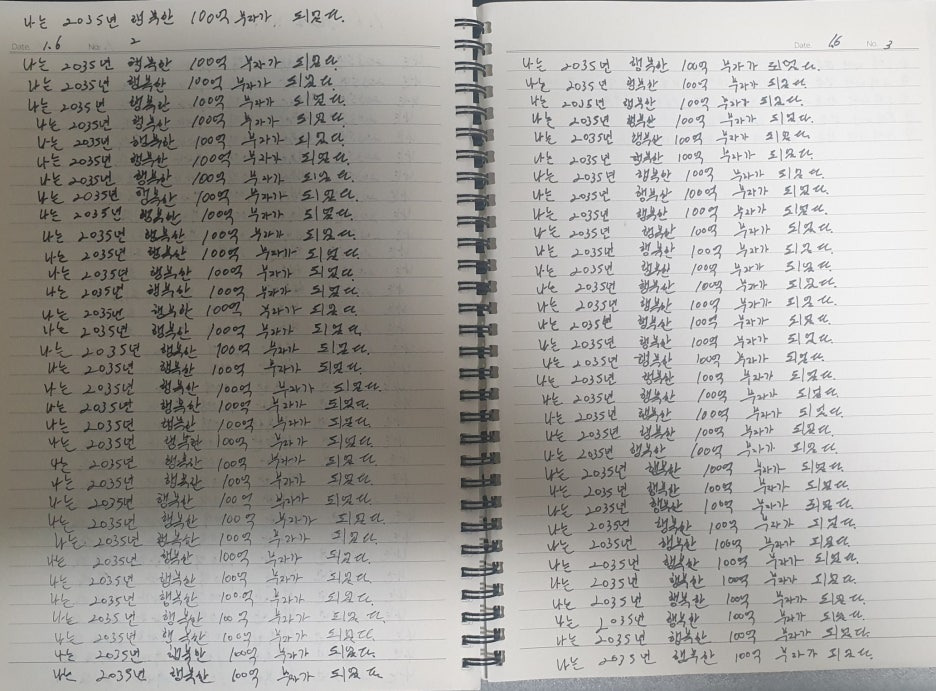 나는 2035년 행복한 100억 부자가 되었다.
Date. 1.6 No. 2
나는 2035년 행복한 100억 부자가 되었다.
나는 2035년 행복한 100억 부자가 되었다.
나는 2035년 행복한 100억 부자가 되었다.
나는 2035년 행복한 100억 부자가 되었다.
나는 2035년 행복한 100억 부자가 되었다.
나는 2035년 행복한 100억 부자가 되었다.
나는 2035년 행복한 100억 부자가 되었다.
나는 2035년 행복한 100억 부자가 되었다.
나는 2035년 행복한 100억 부자가 되었다.
나는 2035년 행복한 100억 부자가 되었다.
나는 2035년 행복한 100억 부자가 되었다.
나는 2035년 행복한 100억 부자가 되었다.
나는 2035년 행복한 100억 부자가 되었다.
나는 2035년 행복한 100억 부자가 되었다.
나는 2035년 행복한 100억 부자가 되었다.
나는 2035년 행복한 100억 부자가 되었다.
나는 2035년 행복한 100억 부자가 되었다.
나는 2035년 행복한 100억 부자가 되었다.
나는 2035년 행복한 100억 부자가 되었다.
나는 2035년 행복한 100억 부자가 되었다.
나는 2035년 행복한 100억 부자가 되었다.
나는 2035년 행복한 100억 부자가 되었다.
나는 2035년 행복한 100억 부자가 되었다.
나는 2035년 행복한 100억 부자가 되었다.
나는 2035년 행복한 100억 부자가 되었다.
나는 2035년 행복한 100억 부자가 되었다.
나는 2035년 행복한 100억 부자가 되었다.
나는 2035년 행복한 100억 부자가 되었다.
나는 2035년 행복한 100억 부자가 되었다.
나는 2035년 행복한 100억 부자가 되었다.
나는 2035년 행복한 100억 부자가 되었다.
나는 2035년 행복한 100억 부자가 되었다.
나는 2035년 행복한 100억 부자가 되었다.
Date. 1.6 No. 3
나는 2035년 행복한 100억 부자가 되었다.
나는 2035년 행복한 100억 부자가 되었다.
나는 2035년 행복한 100억 부자가 되었다.
나는 2035년 행복한 100억 부자가 되었다.
나는 2035년 행복한 100억 부자가 되었다.
나는 2035년 행복한 100억 부자가 되었다.
나는 2035년 행복한 100억 부자가 되었다.
나는 2035년 행복한 100억 부자가 되었다.
나는 2035년 행복한 100억 부자가 되었다.
나는 2035년 행복한 100억 부자가 되었다.
나는 2035년 행복한 100억 부자가 되었다.
나는 2035년 행복한 100억 부자가 되었다.
나는 2035년 행복한 100억 부자가 되었다.
나는 2035년 행복한 100억 부자가 되었다.
나는 2035년 행복한 100억 부자가 되었다.
나는 2035년 행복한 100억 부자가 되었다.
나는 2035년 행복한 100억 부자가 되었다.
나는 2035년 행복한 100억 부자가 되었다.
나는 2035년 행복한 100억 부자가 되었다.
나는 2035년 행복한 100억 부자가 되었다.
나는 2035년 행복한 100억 부자가 되었다.
나는 2035년 행복한 100억 부자가 되었다.
나는 2035년 행복한 100억 부자가 되었다.
나는 2035년 행복한 100억 부자가 되었다.
나는 2035년 행복한 100억 부자가 되었다.
나는 2035년 행복한 100억 부자가 되었다.
나는 2035년 행복한 100억 부자가 되었다.
나는 2035년 행복한 100억 부자가 되었다.
나는 2035년 행복한 100억 부자가 되었다.
나는 2035년 행복한 100억 부자가 되었다.
나는 2035년 행복한 100억 부자가 되었다.
나는 2035년 행복한 100억 부자가 되었다.
나는 2035년 행복한 100억 부자가 되었다.